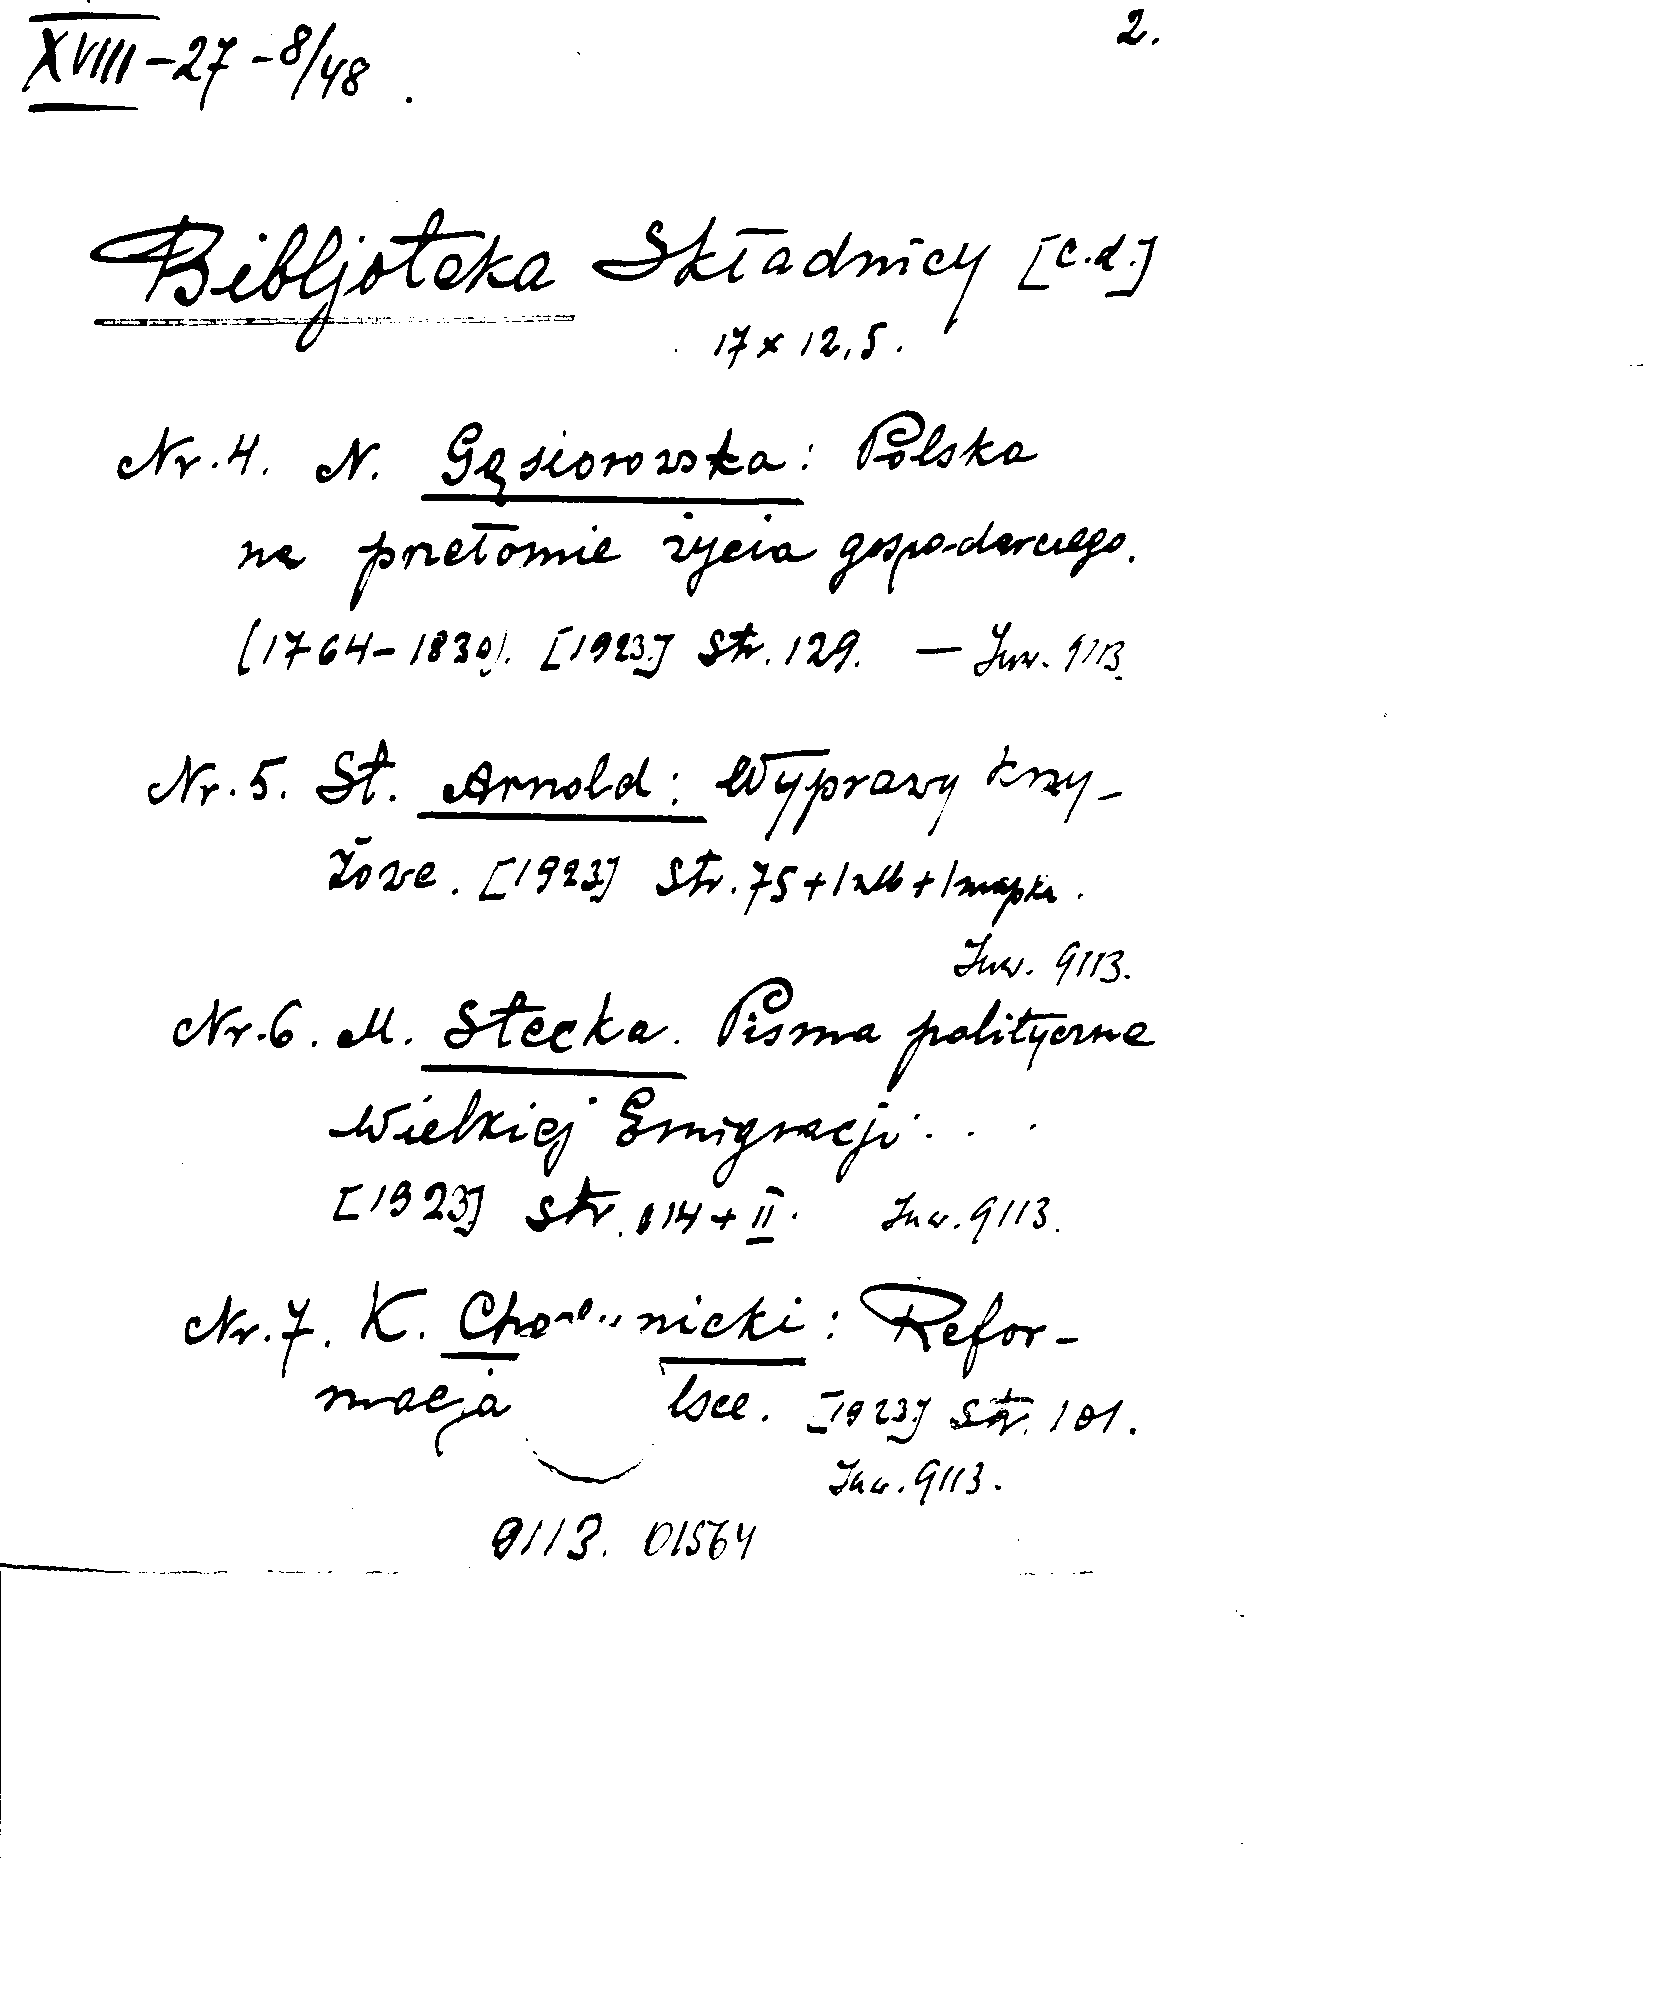 XVIII-27-8/48 2.
Bibljoteka Składnicy [c.d.]
17 x 12,5.
Nr. 4. N. Gąsiorowska: Polska
na przełomie życia gospodarczego.
(1764-1830). [1923] Str. 129. — Inw. 9113.
Nr. 5. St. Arnold: Wyprawy krzy-
żowe. [1923] str. 75+1 nlb+1 mapka.
Inw. 9113.
Nr. 6. M. Stecka. Pisma polityczne
Wielkiej Emigracji . . .
[1923] str. 114 + II. Inw. 9113.
Nr. 7. K. nicki: Refor-
macja lsce. [1923] str. 101.
Inw. 9113.
9113. 01564